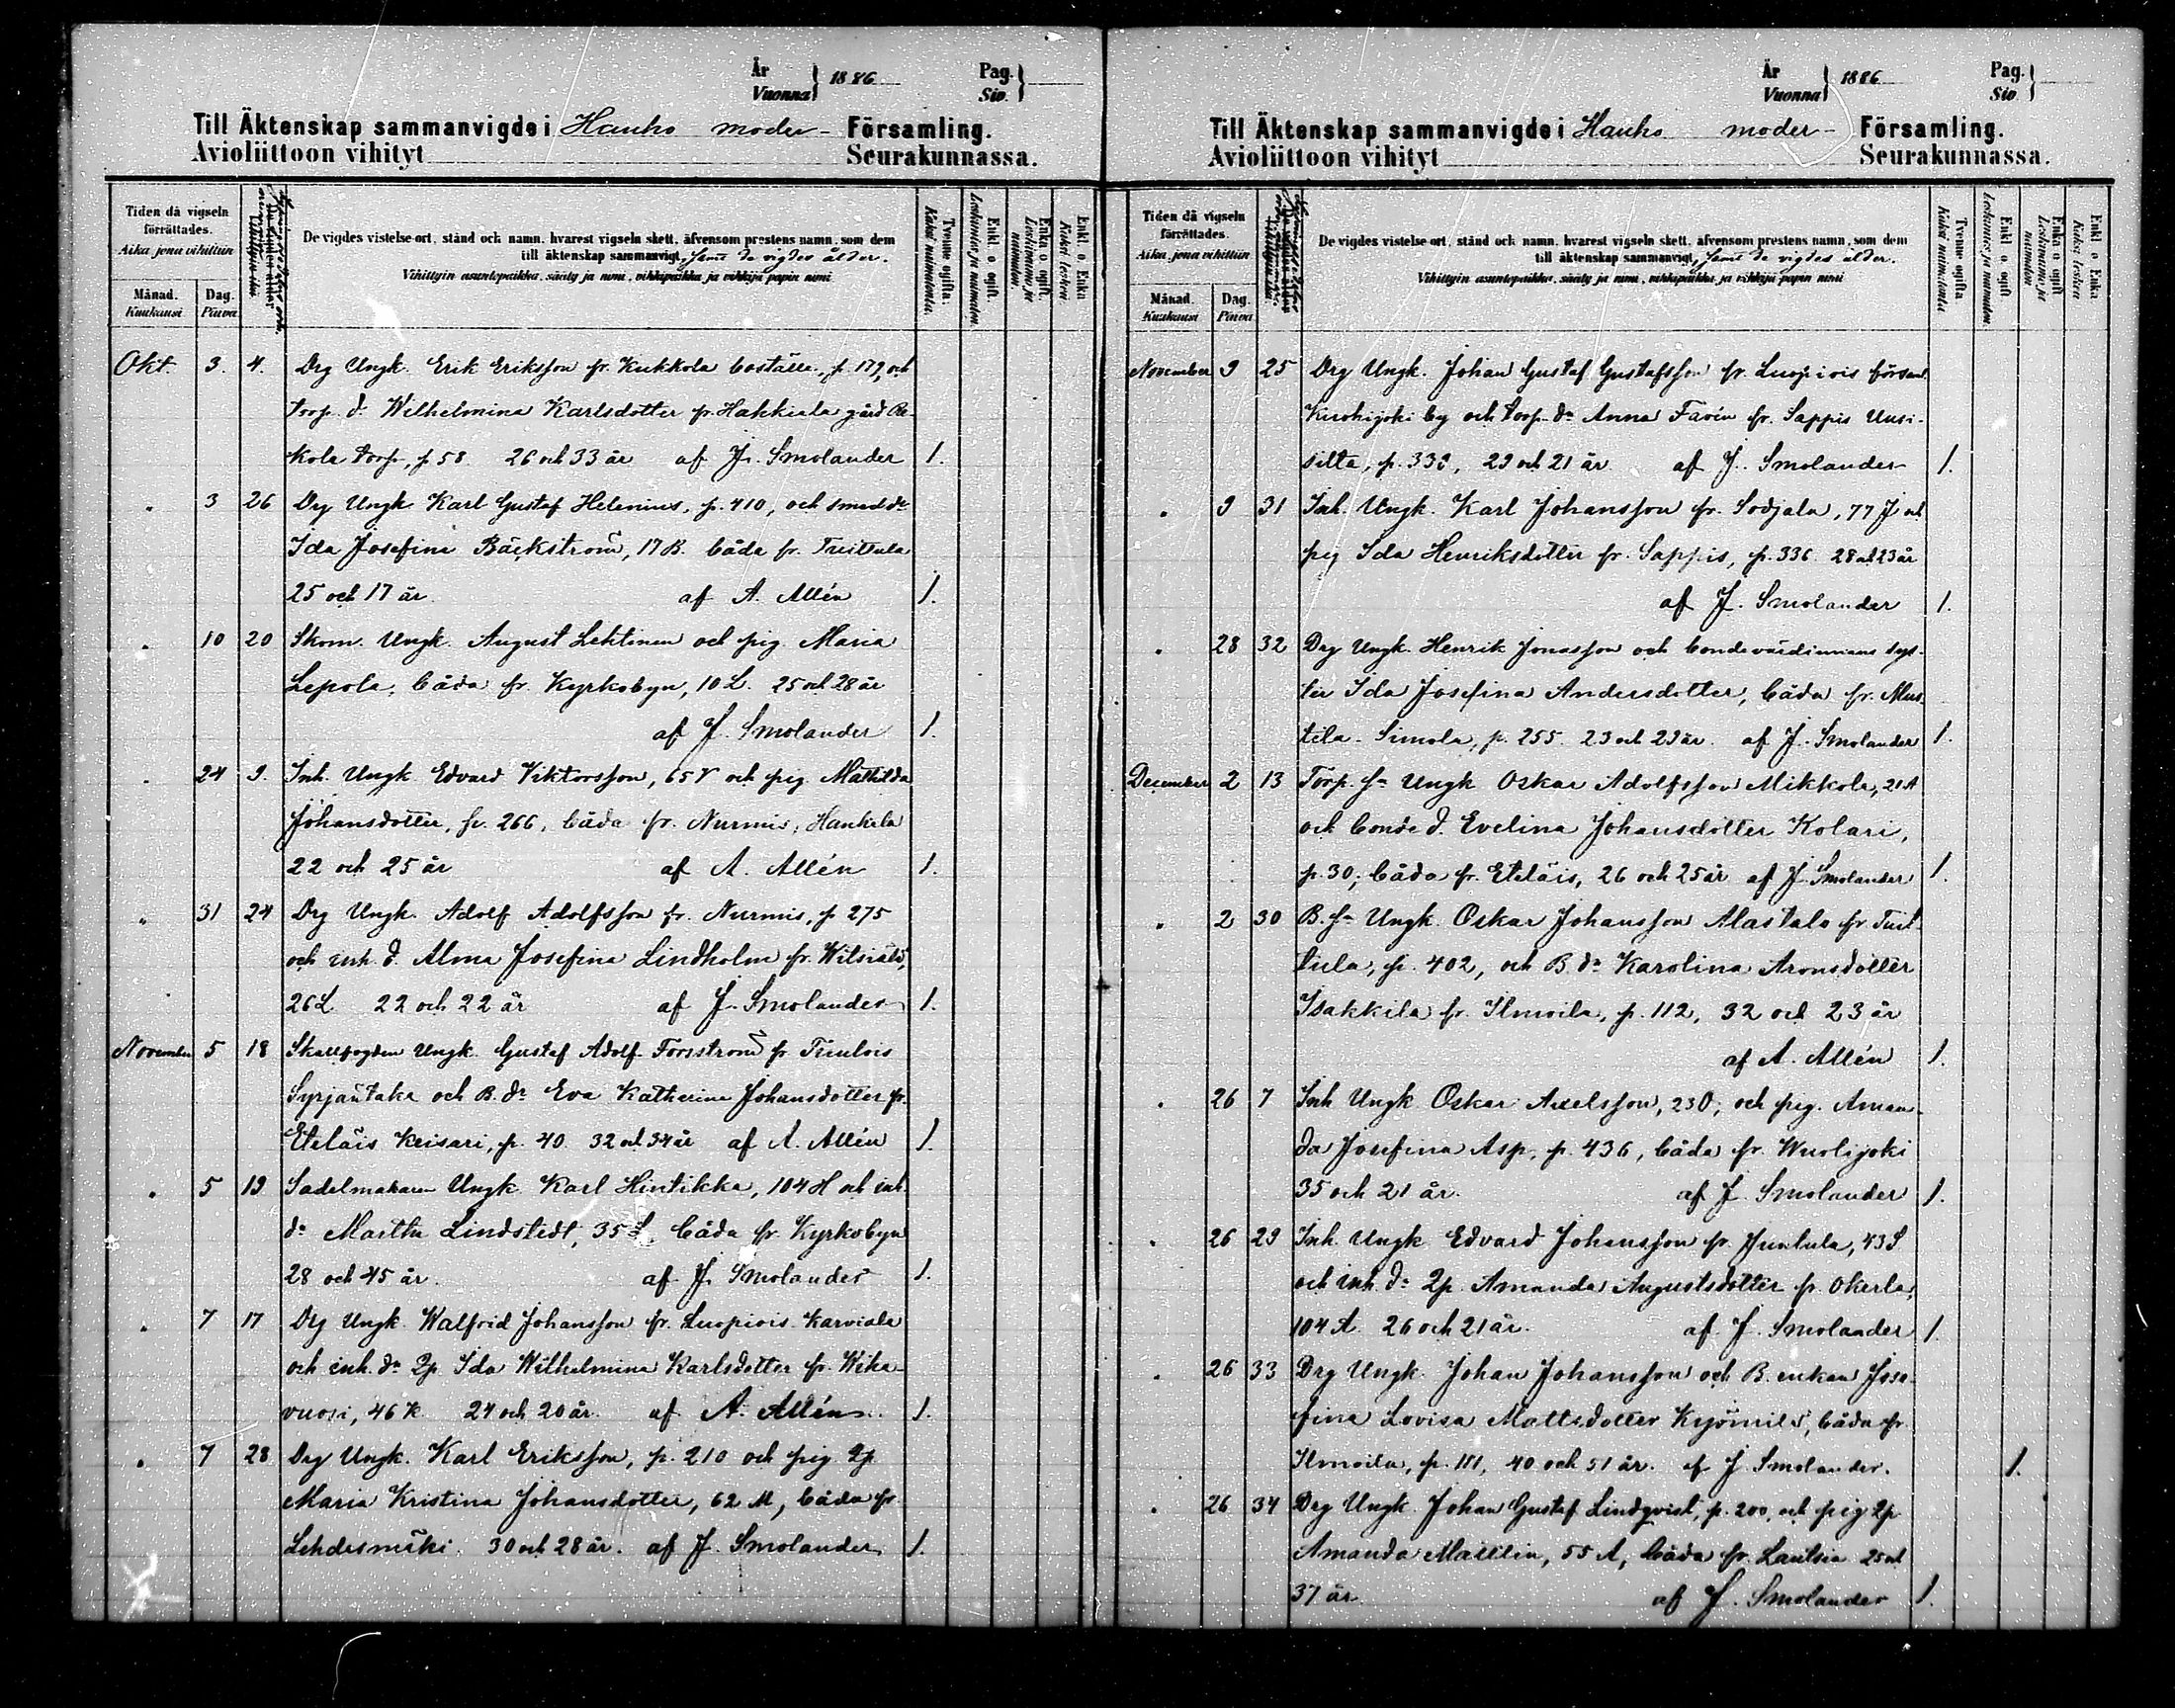 År
Vuonna } 1886
Pag.
Siv. }
Till Äktenskap sammanvigde i Hauho moder- Församling.
Avioliittoon vihityt Seurakunnassa.
Tiden då vigseln
förrättades.
Aika jona vihittiin
Månad.
Kuukausi
Dag.
Päivä
De vigdes vistelse-ort, stånd och namn, hvarest vigseln skett, äfvensom prestens namn, som dem
till äktenskap sammanvigt, samt de vigdes ålder.
Vihittyin asuntopaikka, sääty ja nimi, vihkipaikka ja vihkijä papin nimi
Tvenne ogifta.
Kaksi naimatonta.
Enkl. o. ogift.
Leskimies ja naimaton.
Enka o. ogift.
Leskivaimo ja
naimaton.
Enkl. o. Enka
Kaksi leskeä.
Okt. 3. 4. Drg Ungk. Erik Eriksson fr. Kukkola boställe, p. 179, och
torp. d. Wilhelmina Karlsdotter fr. Hahkiala gård
kola torp, p 58. 26 och 33 år af J. Smolander 1.
" 3 26 Drg Ungk Karl Gustaf Helenius, p. 410, och smed dr
Ida Josefina Bäckström, 17 B. båda fr. Tuittula
25 och 17 år af A. Allén 1.
" 10 20 Skom. Ungk. August Lehtinen och pig. Maria
Lepola, båda fr. Kyrkobyn, 10 L. 25 och 28 år
af J. Smolander 1.
" 24 9. Inh. Ungk Edvard Viktorsson, 65 V och pig. Mathilda
Johansdotter, p. 266, båda fr. Nurmis, Hankala
22 och 25 år af A. Allén 1.
" 31 24 Drg Ungk. Adolf Adolfsson fr. Nurmis, p 275
och inh. d. Alma Josefina Lindholm fr. Witsiälä,
26 L 22 och 22 år af J. Smolander 1.
November 5 18 Skallfogden Ungk. Gustaf Adolf Forsström fr Tuulois
Syrjäntaka och B. dr Eva Katharina Johansdotter fr.
Eteläis Keisari, p. 40. 32 och 34 år af A. Allén 1.
" 5 19 Sadelmakaren Ungk Karl Hintikka, 104 H och inh.
dr Martha Lindstedt, 35 L, båda fr. Kyrkobyn
28 och 45 år. af J. Smolander 1.
" 7 17 Drg Ungk. Walfrid Johansson fr. Luopiois Karviala
och inh. dr 2p. Ida Wilhelmina Karlsdotter fr. Wiha-
vuosi, 46 K. 24 och 20 år. af A. Allén. 1.
" 7 28 Drg Ungk. Karl Eriksson, p. 210 och pig 2p
Maria Kristina Johansdotter, 62 M, båda fr.
Lehdesmäki. 30 och 28 år. af J. Smolander 1.
År
Vuonna } 1886
Pag.
Siv. }
Till Äktenskap sammanvigde i Hauho moder- Församling.
Avioliittoon vihityt Seurakunnassa.
Tiden då vigseln
förrättades.
Aika, jona vihittiin
Månad.
Kuukausi
Dag.
Päivä
De vigdes vistelse-ort, stånd och namn, hvarest vigseln skett, äfvensom prestens namn, som dem
till äktenskap sammanvigt, samt de vigdes ålder.
Vihittyin asuntopaikka, sääty ja nimi, vihkipaikka ja vihkijä papin nimi
Tvenne ogifta
Kaksi naimatonta
Enkl o. ogift
Leskimies ja naimaton.
Enka o. ogift
Leskivaimo ja
naimaton
Enkl o Enka
Kaksi leskeä
November 9 25 Drg Ungk. Johan Gustaf Gustafsson fr. Luopiois församl.
Kuohijoki by och torp. dr Anna Favén fr. Sappis Uusi-
silta, p. 339, 29 och 21 år. af J. Smolander 1.
" 9 31 Inh. Ungk. Karl Johansson fr. Sodjala, 77 J och
pig Ida Henriksdotter fr. Sappis, p. 336 28 och 23 år
af J. Smolander 1.
" 28 32 Drg Ungk. Henrik Jonasson och bondevärdinnans sys-
ter Ida Josefina Andersdotter, båda fr. Mus-
tila-Simola, p. 255. 23 och 29 år. af J. Smolander 1.
December 2 13 Torp. sn Ungk Oskar Adolfsson Mikkola, 21 A
och bonde d. Evelina Johansdotter Kolari,
p. 30; båda fr. Eteläis, 26 och 25 år af J. Smolander 1.
" 2 30 B. sn Ungk. Oskar Johansson Alastalo fr. Tuit-
tula, p. 402, och B. dr Karolina Aronsdotter
Isakkila fr. Ilmoila, p. 112, 32 och 23 år
af A. Allén 1.
" 26 7 Inh Ungk Oskar Axelsson, 23 O; och pig. Aman-
da Josefina Asp, p. 436, båda fr. Wuolijoki
35 och 21 år. af J. Smolander 1.
" 26 29 Inh. Ungk Edvard Johansson fr. Juntula, 43 S
och inh. dr 2p. Amanda Augustsdotter fr. Okerla,
104 A. 26 och 21 år. af J. Smolander 1.
" 26 33 Drg Ungk. Johan Johansson och B. enkan Jose-
fina Lovisa Mattsdotter Kyömilä, båda fr.
Ilmoila, p. 111, 40 och 51 år. af J Smolander. 1.
" 26 34 Drg Ungk. Johan Gustaf Lindqvist, p. 200, och pig 2p
Amanda Mattlin, 55 A, båda fr. Lautsia 25 och
37 år. af J. Smolander 1.